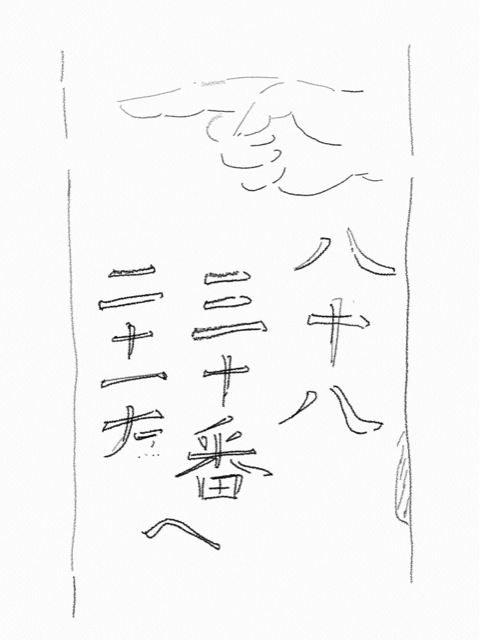 八十八
三十番
二十一た
へ